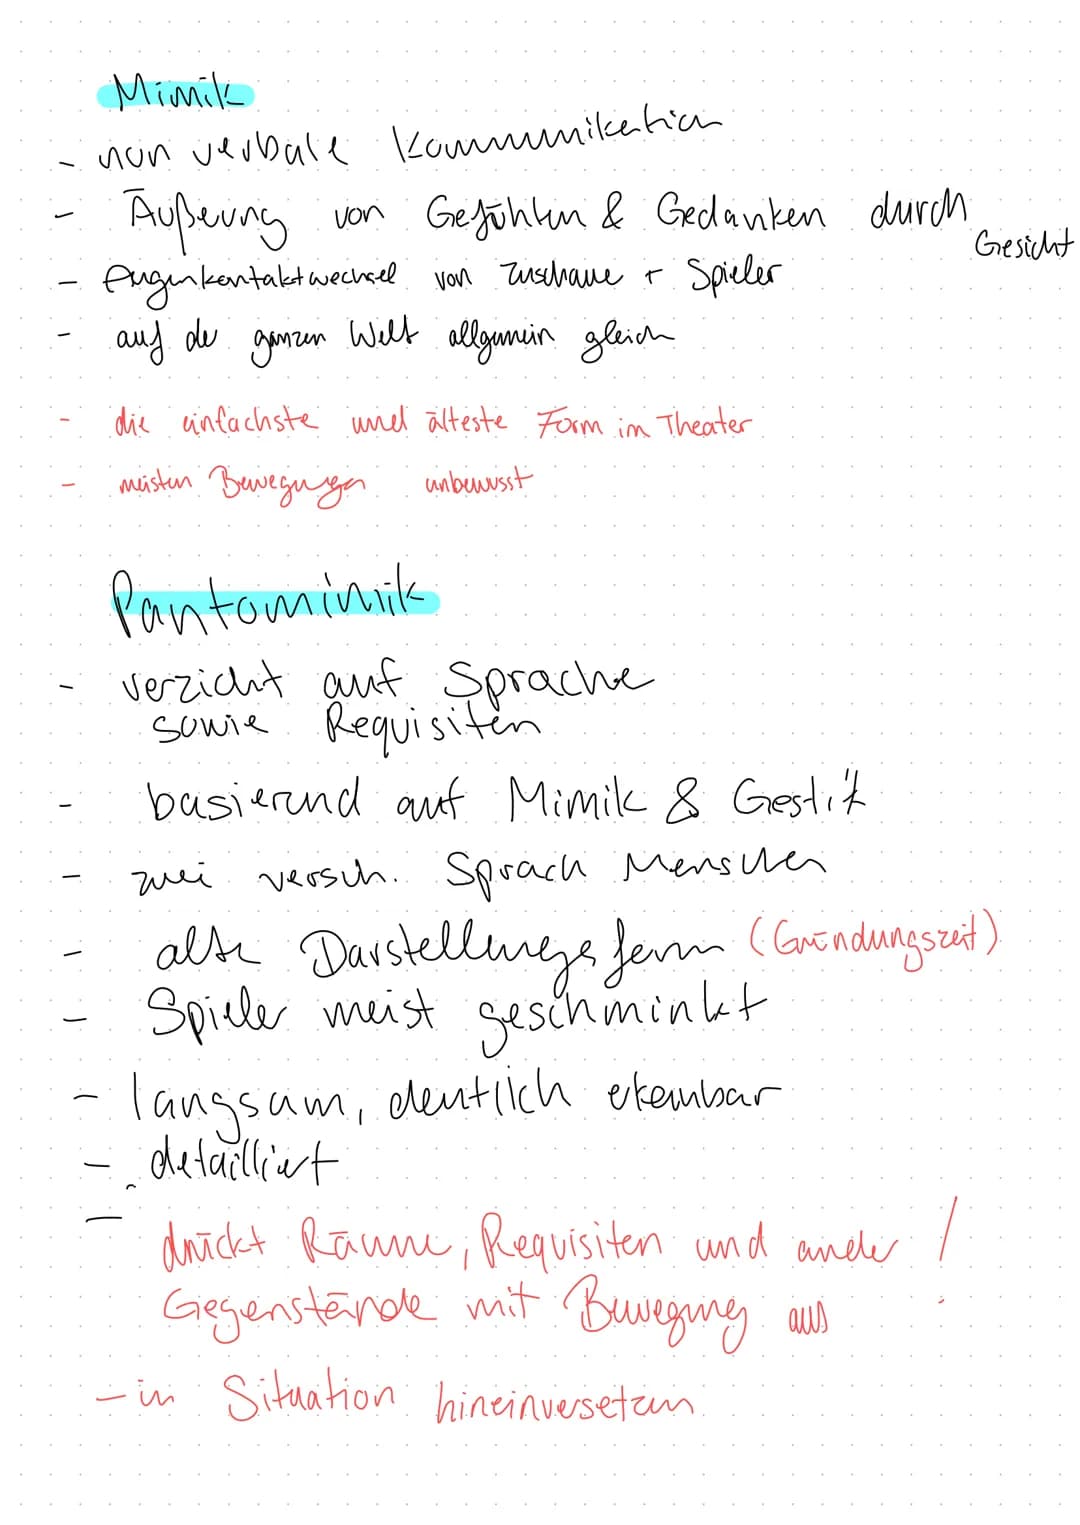 Mimik
- non verbale Kommunikation
- Äußerung von Gefühlen & Gedanken durch Gesicht
- Augenkontaktwechsel von Zuschaue + Spieler
- auf der ganzen Welt allgemein gleich
- die einfachste und älteste Form im Theater
- meisten Bewegungen unbewusst
Pantomimik
- verzicht auf Sprache
sowie Requisiten
- basierend auf Mimik & Gestik
- zwei versch. Sprach Menschen
- alte Darstellungsform (Gründungszeit)
- Spieler meist geschminkt
- langsam, deutlich erkennbar
- detailliert
- drückt Räume, Requisiten und ander !
Gegenstände mit Bewegung aus
- in Situation hineinversetzen